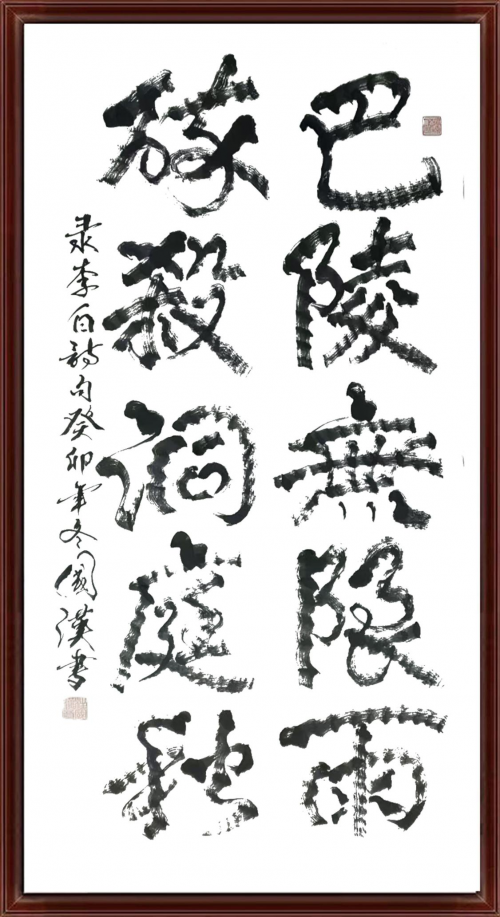 巴陵無限雨
醉殺洞庭秋
录李白詩句癸卯年冬國漢書